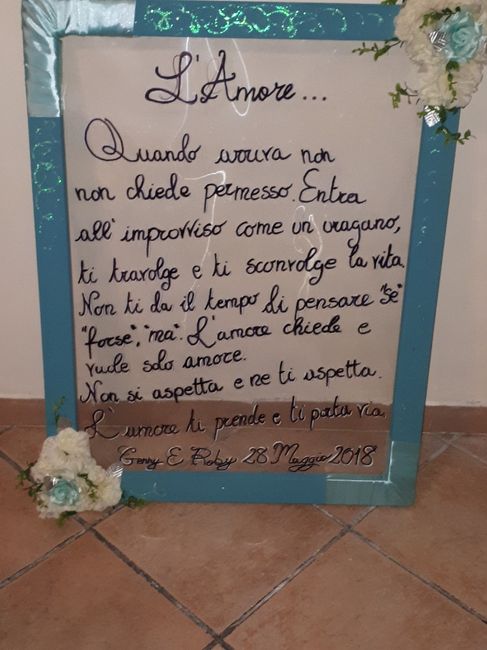 L'Amore...
Quando arriva non
non chiede permesso. Entra
all' improvviso come un uragano,
ti travolge e ti sconvolge la vita.
Non ti da il tempo di pensare "Se"
"forse", "ma". L'amore chiede e
vuole solo amore.
Non si aspetta e ne ti aspetta.
L' amore ti prende e ti porta via.
Genny E Roby 28 Maggio 2018